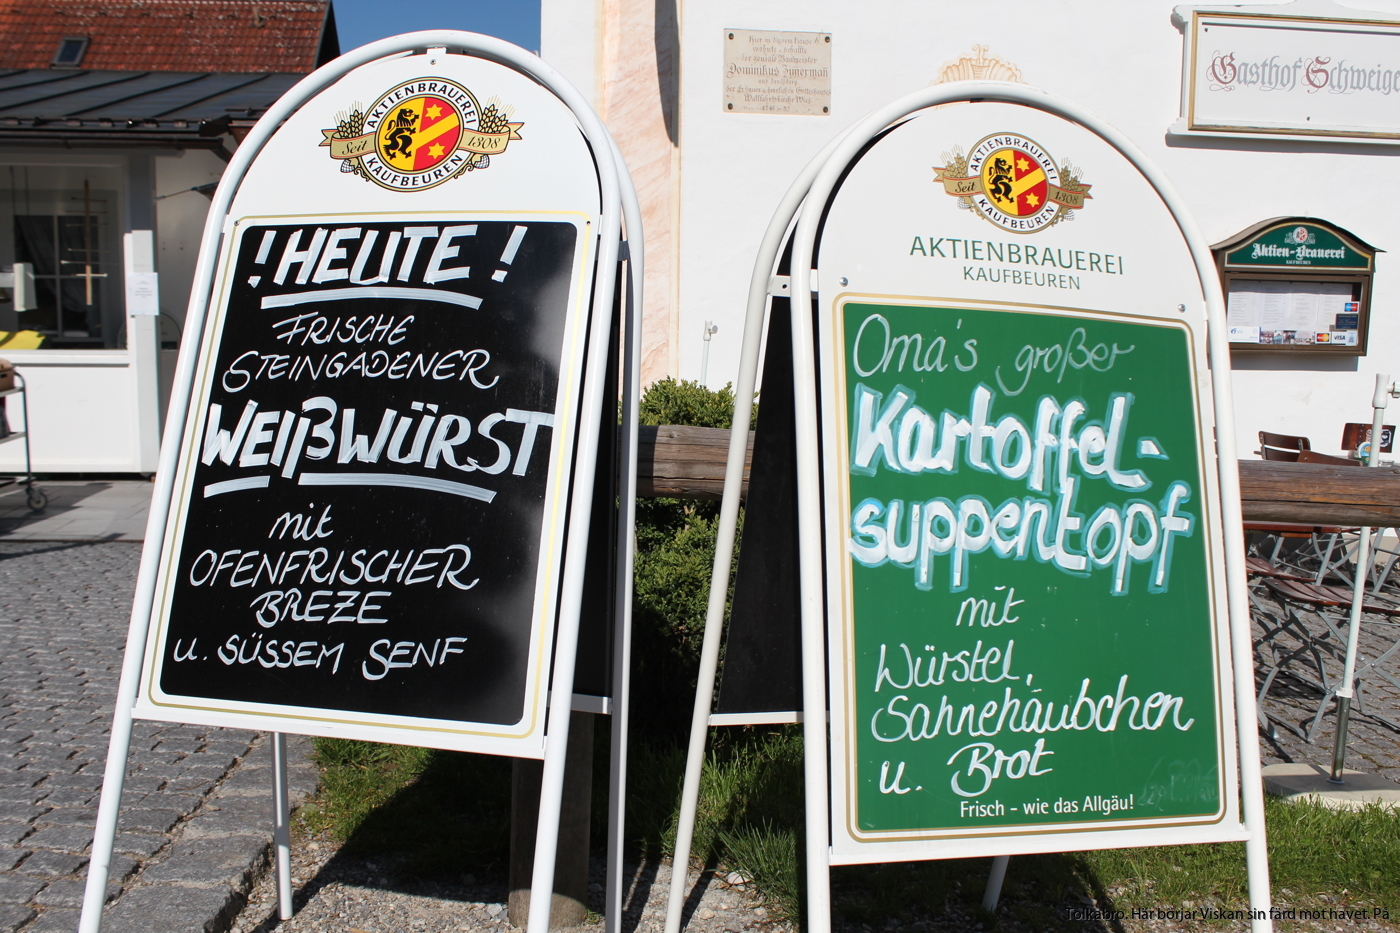 AKTIENBRAUEREI
Seit 1308
KAUFBEUREN
! HEUTE !
FRISCHE
STEINGADENER
WEIßWÜRST
mit
OFENFRISCHER
BREZE
u. SÜSSEM SENF
AKTIENBRAUEREI
Seit 1308
KAUFBEUREN
AKTIENBRAUEREI
KAUFBEUREN
Oma's großer
Kartoffel-
suppentopf
mit
Würstel,
Sahnehäubchen
u. Brot
Frisch - wie das Allgäu!
Hier in diesem Hause
wohnte u. schaffte
der geniale Baumeister
Dominikus Zimmerman
Gasthof Schweige
Aktien-Brauerei
KAUFBEUREN
VISA
Tolkabro. Här börjar Viskan sin färd mot havet. På